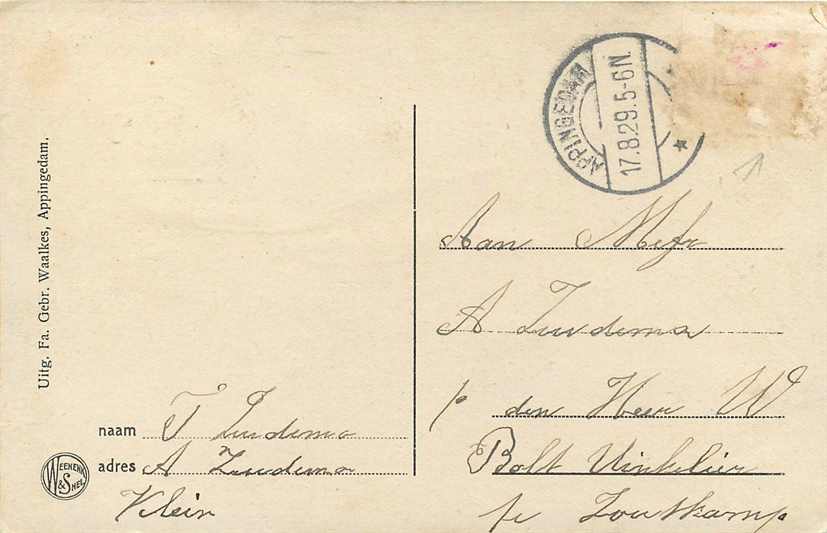 APPINGEDAM
17.8.29.5-6N.
Uitg. Fa. Gebr. Waalkes, Appingedam.
Aan Mejr
A Zuidema
p/ den Heer W
Bolt Winkelier
te Zoutkamp
naam T Zuidema
adres A Zuidema
Klein
WEENENK & SNEL